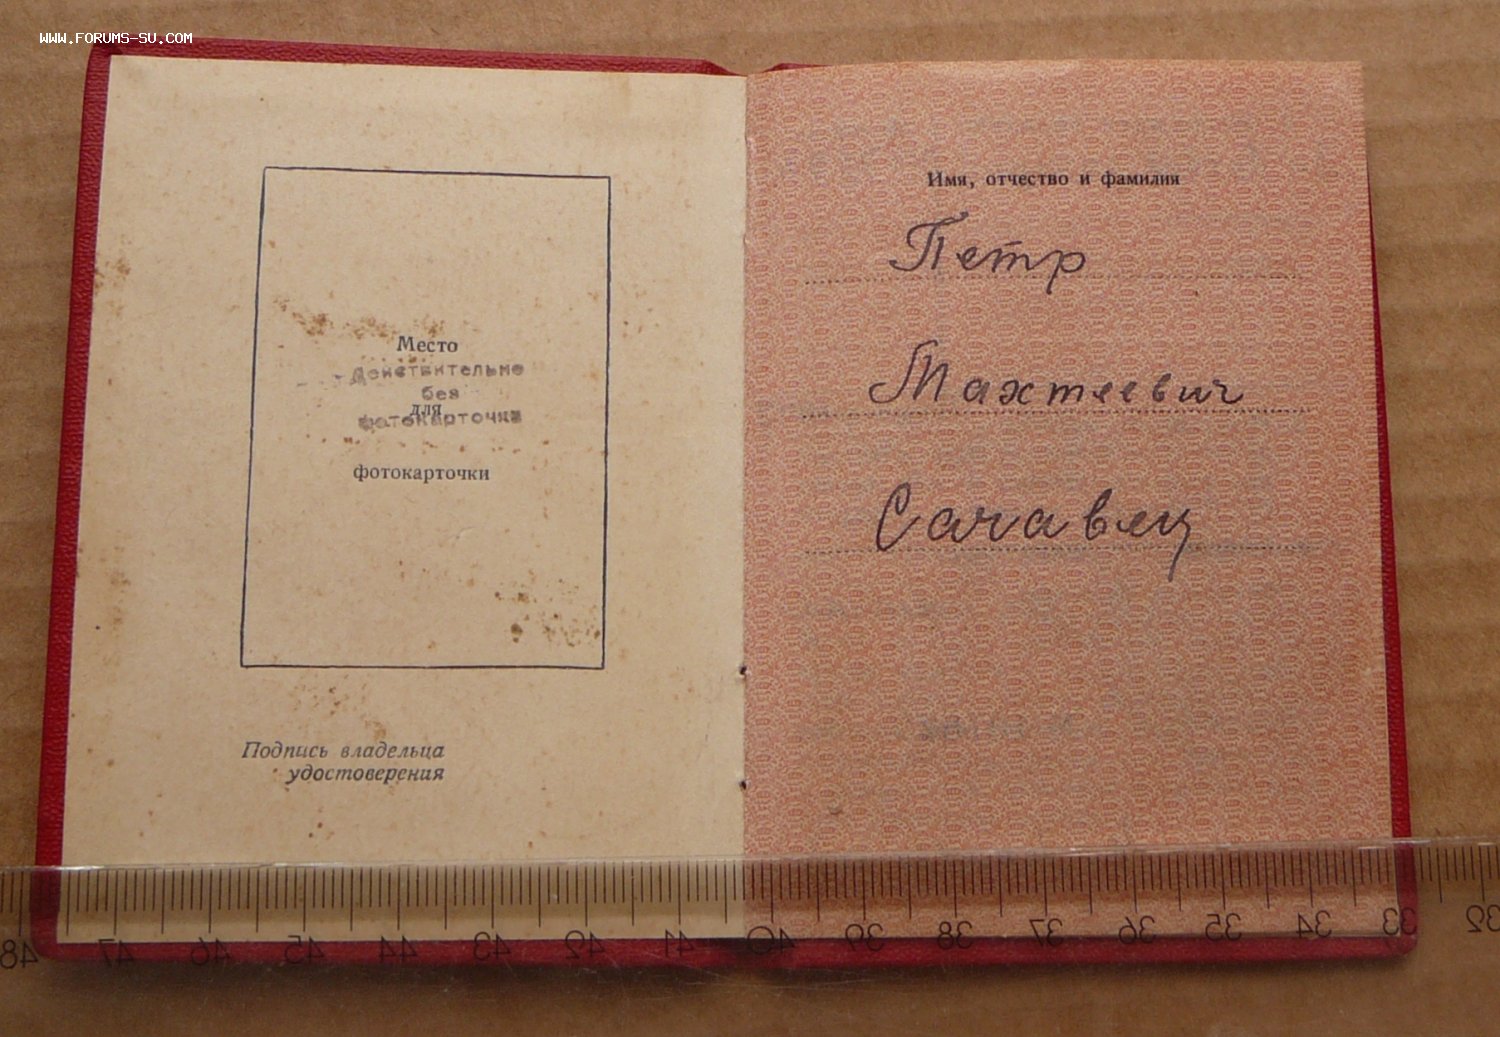 WWW.FORUMS-SU.COM
Место
Действительно
без
для
фотокарточки
фотокарточки
Подпись владельца
удостоверения
Имя, отчество и фамилия
Петр
Махтеевич
Сачавец
48 47 46 45 44 43 42 41 40 39 38 37 36 35 34 33 32